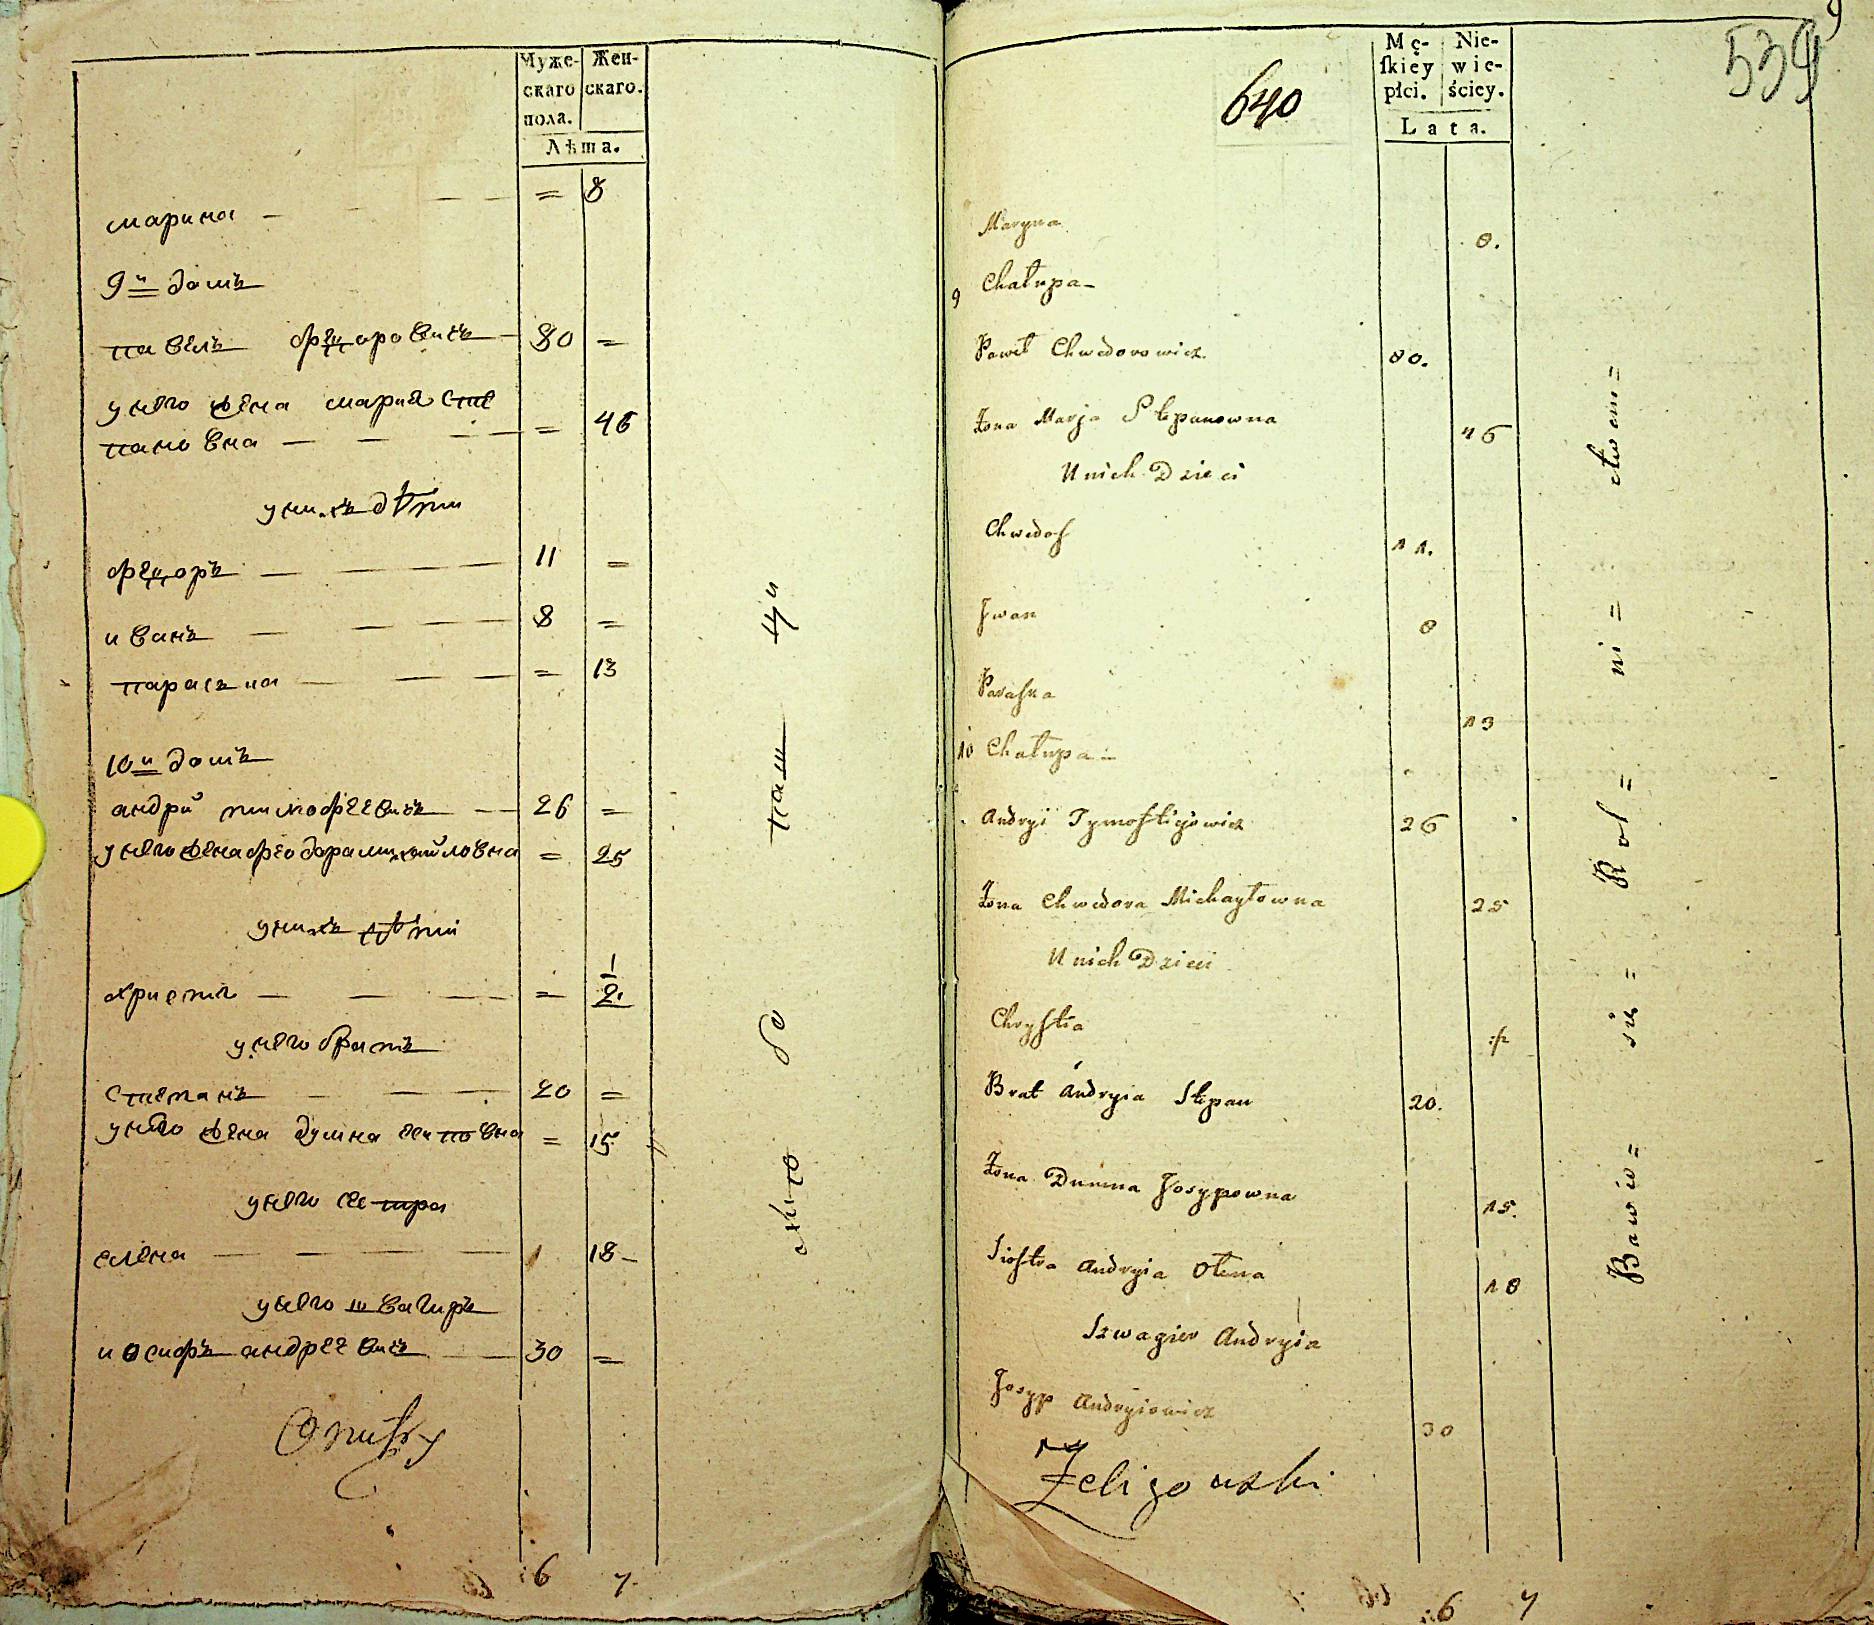 Муже-
скаго
пола.
Жен-
скаго.
Лѣта.
марина — = 8
9й домъ
павелъ фецоровичъ — 80 =
у него жена мария сте
пановна — = 46
у нихъ дѣти
фецоръ — 11 =
иванъ — 8 =
парасъна — = 13
10й домъ
андрй тимофеевичъ — 26 =
у него жена феодора михайловна = 25
у нихъ дѣти
христя — = 1/2
у него братъ
степанъ — 20 =
у него жена думна есиповна = 15
у него сестра
елена — 18 —
у него швагиръ
иосифъ андреевичъ — 30 =
6 7
640
539
9
Mę-
ſkiey
płci.
Nie-
wie-
ściey.
Lata.
Maryna 8.
9 Chałupa -
Paweł Chwedorowicz 80.
Żona Marja Stepanowna 46
U nich Dzieci
Chwedor 11.
Jwan 8
Paraſka 13
10 Chałupa -
Andryi Tymoſtiejowicz 26
Żona Chwedora Michayłowna 25
U nich Dzieci
Chryſtia
Brat Andryia Stepan 20.
Żona Dumna Josypowna 15.
Sioſtra Andryia Olena 18
Szwagier Andryia
Josyp Andryiowicz 30
Żeligowski
6 7
Bawią = się = Rol = ni = ctwem =